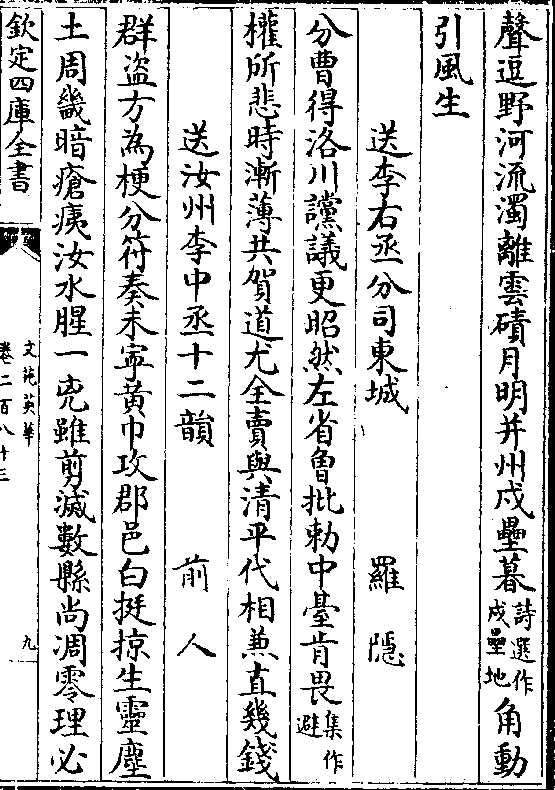 聲逗野河流濁離雲磧月明并州戍壘暮詩選作戍壘地角動
引風生
送李右丞分司東城 羅隱
分曹得洛川讜議更昭然左省曾批勅中臺肯畏集作避
權所悲時漸薄共賀道尤全賣與清平代相兼直幾錢
送汝州李中丞十二韻 前人
群盜方為梗分符奏未寧黃巾攻郡邑白挺掠生靈塵
土周畿暗瘡痍汝水腥一兇雖剪滅數縣尚凋零理必
欽定四庫全書
文苑英華
卷二百八十三
九